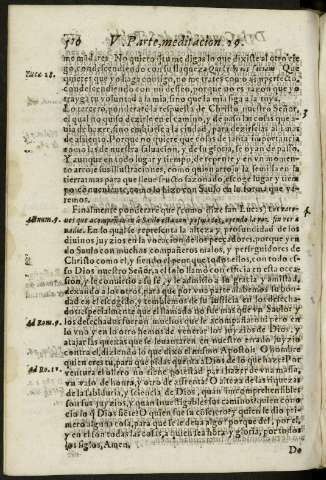 510 V. Parte, meditacion 29.
mo madres. No quiero que me digas lo que dixiste al otro cie-
Lucæ 18. go, condescendiendo con su flaqueza: Quid tibi vis faciam Que
quieres que yo haga contigo, no me trates como a imperfecto,
condescendiendo con mi desseo, porque no es razon que yo
trayga tu voluntad a la mia, sino que la mia siga a la tuya.
Lo tercero, ponderarè la respuesta de Christo nuestro Señor,
el qual no quiso dezirle en el camino, y de passo las cosas que a-
uia de hazer, sino embiarle a la ciudad, para dezirselas alli mas
de assiento. Porque no quiere que cosas de tanta importancia
como las de nuestra saluacion, y de su gloria, se oyan de passo.
Y aunque en todo lugar y tiempo, de repente y en vn momen-
to arroje sus illustraciones, como quien arroja la semilla en la
tierra mas para que lleue fructo sazonado, escoge lugar y tiem-
po conueniente, como lo hizo con Saulo en la forma que ve-
remos.
Finalmente ponderarè que (como dize san Lucas) los varo-
Act. num. 7. nes que acompañauan a Saulo estauan pasmados, oyendo la voz, sin ver a
nadie. En lo qual se representa la alteza y profundidad de los
diuinos juyzios en la vocacion de los peccadores, porque y en-
do Saulo con muchas compañeros malos, y perseguidores de
Christo como el, y siendo el peor que todos ellos, con todo es-
so Dios nuestro Señor, a el solo llamò con efficacia en esta oca-
sion, y le conuirtio a su fè, y le admitio a su gracia y amistad,
dexando a los otros, para que por vna parte alabemos su bon-
dad en el escogido, y temblemos de su justicia en los desecha-
dos, specialmente que el llamado no fue mas que vn Saulo y
Ad Rom. 9. los desechados fueron muchos que le acompañauan: pero en
lo vno y en lo otro hemos de venerar los juyzios de Dios, y
atajar las quexas que se leuantaren en nuestro errado juyzio
contra el, diziendo lo que dixo el mismo Apostol: O hombre
quien eres tu, para que pidas quenta a Dios de lo que haze? Por
ventura el ollero no tiene potestad para hazer de vna massa,
Ad Ro. 11. vn vaso de honra, y otro de affrenta? O alteza de las riquezas
de la sabiduria, y sciencia de Dios, quan incomprehensibles
son sus juyzios, y quan inuestigables sus caminos: quien cono-
cio lo q̃ Dios siẽte? O quien fue su cõsejero? y quien le dio pri-
mero alguna cosa, para que se le deua algo? porque del, por el,
y en el son todas las cosas, a quien sea honra y gloria, por todos
los siglos, Amen.
De